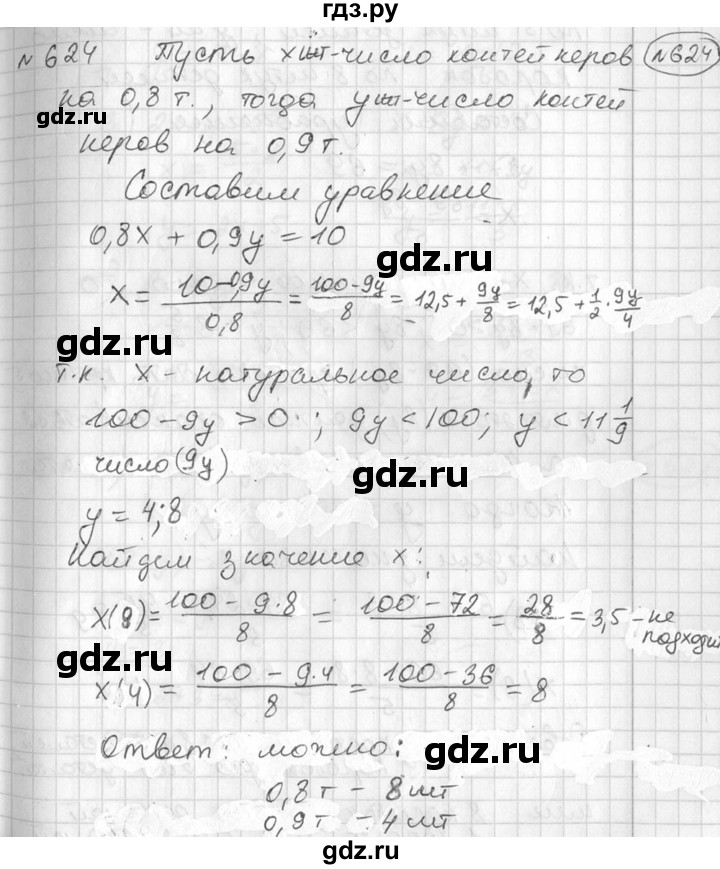 гдз.ру
№624 Пусть x шт-число контейнеров №624
на 0,8 т., тогда y шт-число контей
неров на 0,9 т.
Составим уравнение
0,8x + 0,9y = 10
гдз.ру
x = 10-0,9y / 0,8 = 100-9y / 8 = 12,5 + 9y/8 = 12,5 + 1/2 · 9y/4
гдз.ру
т.к. x - натуральное число, то
100 - 9y > 0 ; 9y < 100; y < 11 1/9
число (9y)
гдз.ру
y = 4;8
Найдем значение x:
x(8) = 100 - 9·8 / 8 = 100 - 72 / 8 = 28/8 = 3,5 - не
подходит
гдз.ру
x(4) = 100 - 9·4 / 8 = 100 - 36 / 8 = 8
Ответ: можно:
гдз.ру
0,8 т - 8 шт
0,9 т - 4 шт
гдз.ру